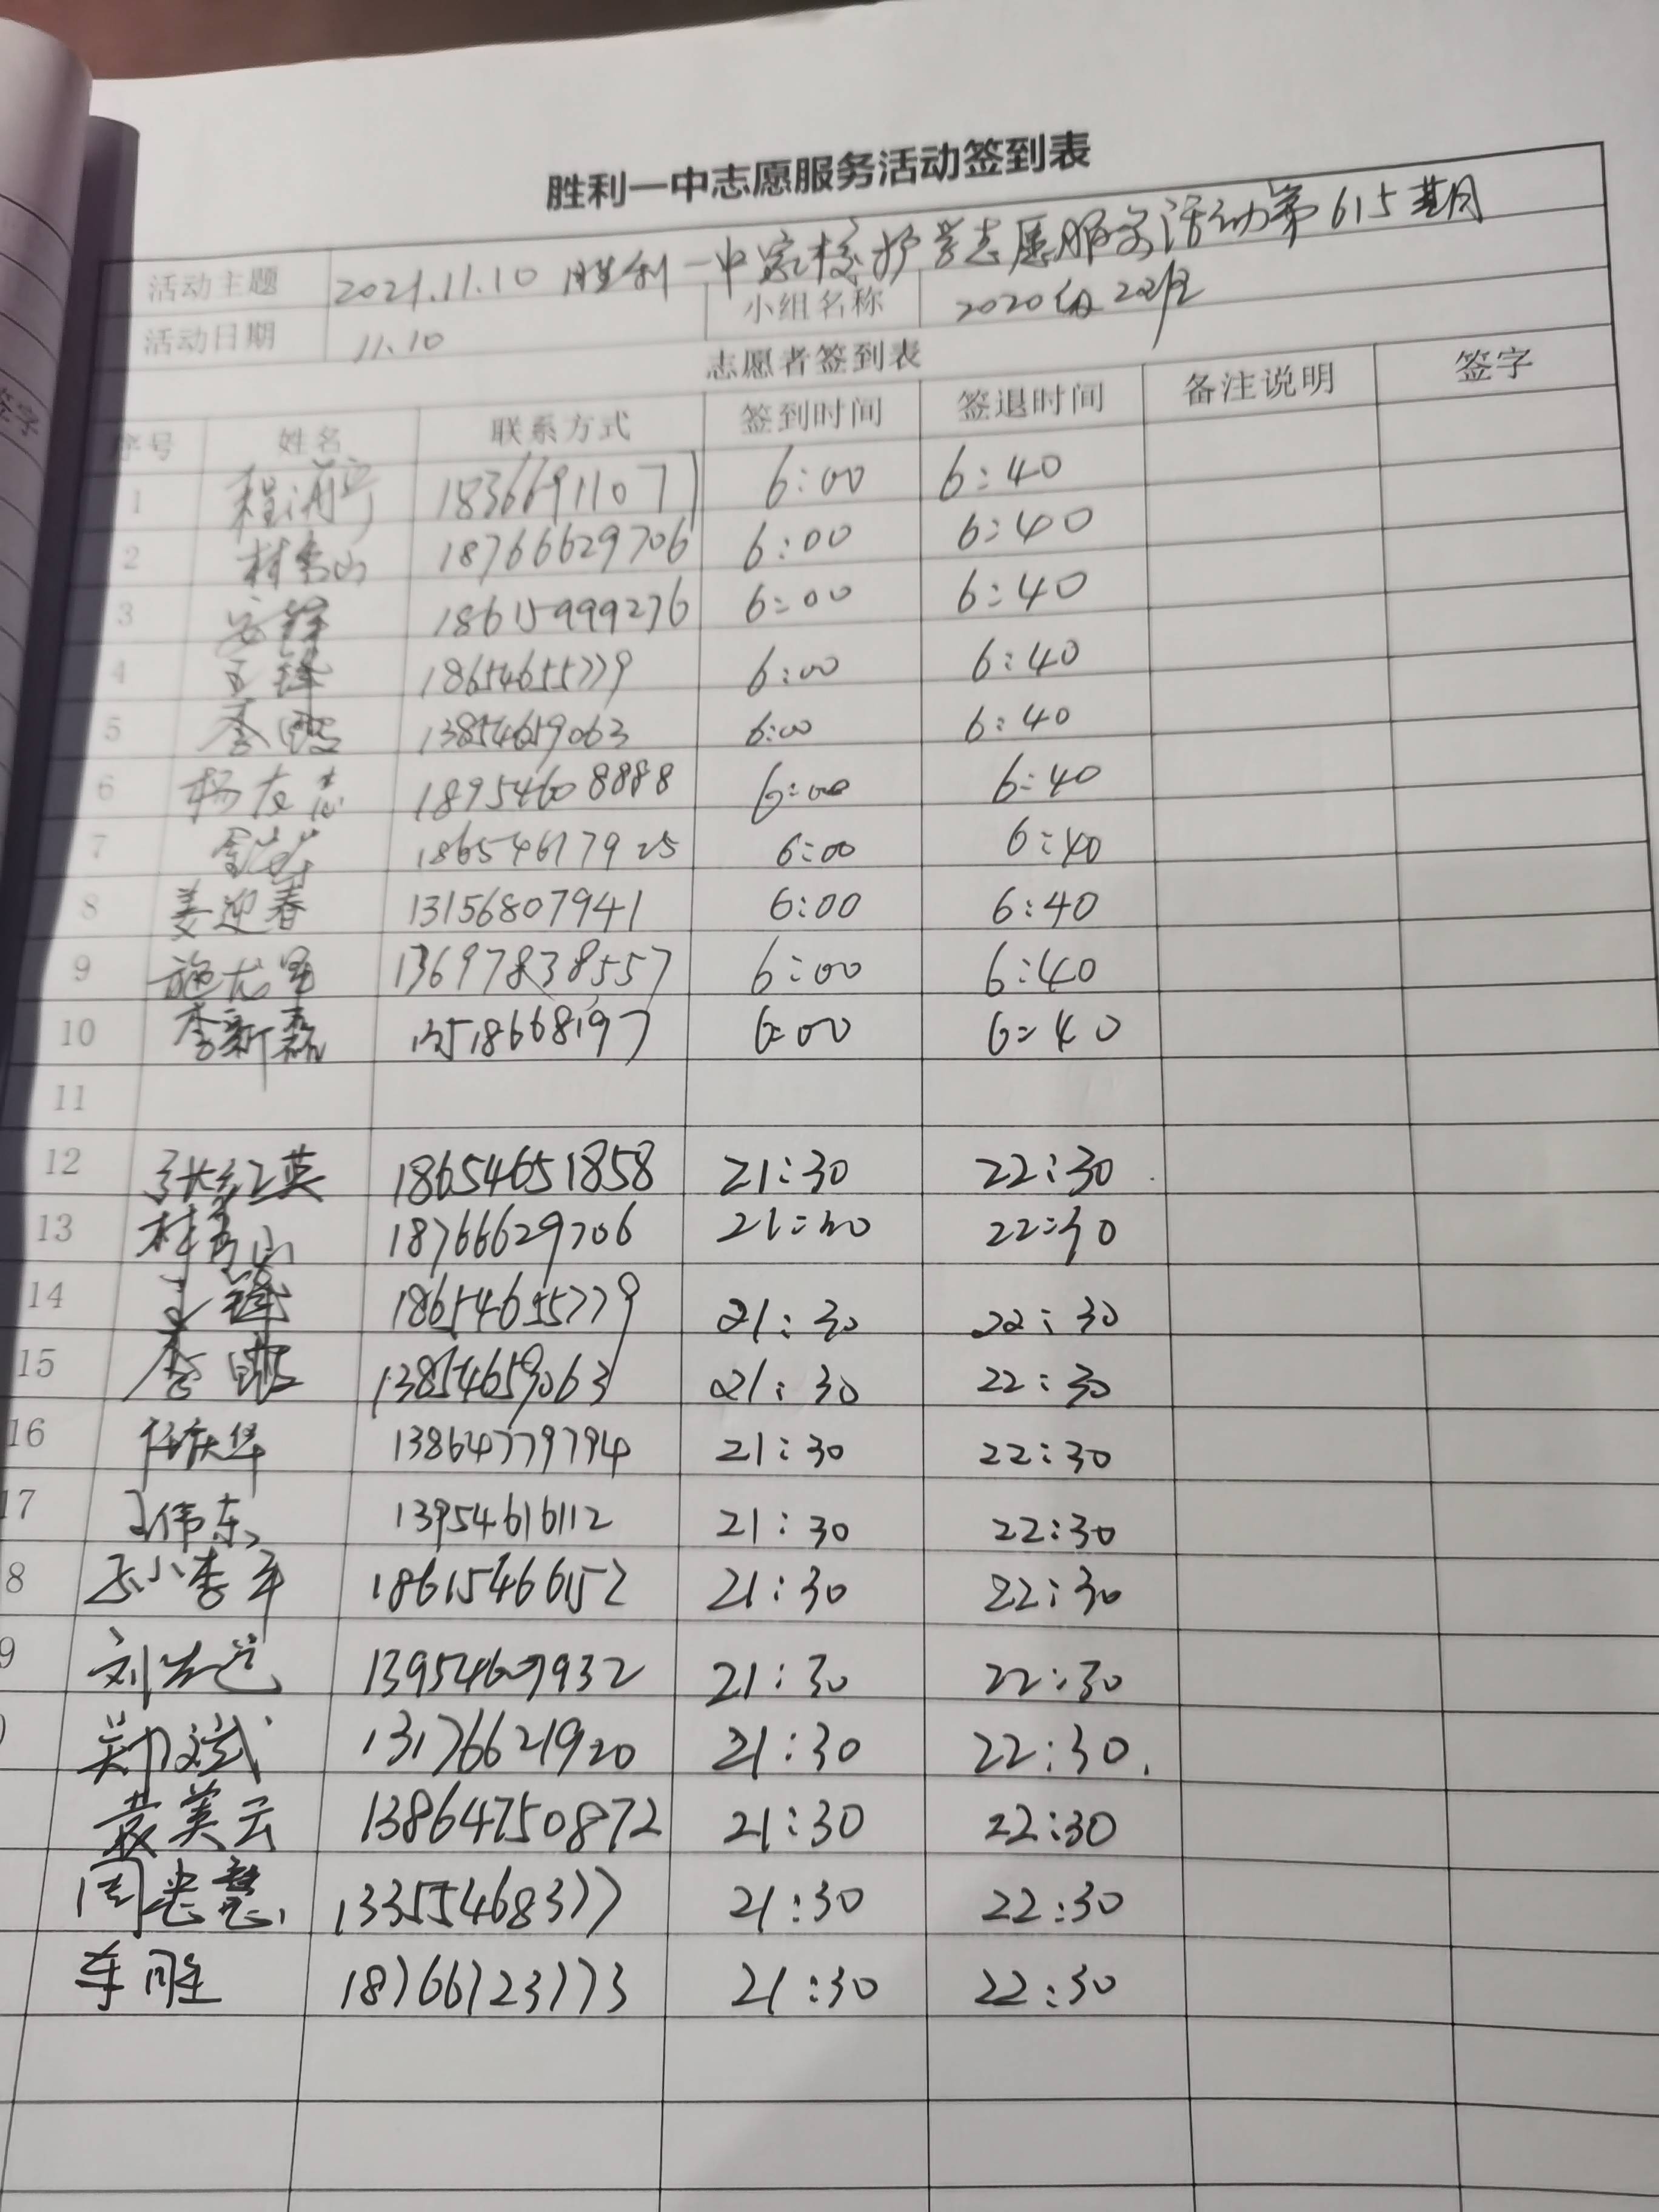 胜利一中志愿服务活动签到表
活动主题 2021.11.10 胜利一中家校护学志愿服务活动第615期
活动日期 11.10 小组名称 2020级22班
志愿者签到表
序号 姓名 联系方式 签到时间 签退时间 备注说明 签字
1 18366911077 6:00 6:40
2 林秀山 18766629706 6:00 6:40
3 18615999276 6:00 6:40
4 王锋 18654655779 6:00 6:40
5 李鹏 13854659063 6:00 6:40
6 杨友志 18954608888 6:00 6:40
7 18654617925 6:00 6:40
8 姜迎春 13156807941 6:00 6:40
9 施龙军 13697838557 6:00 6:40
10 李新磊 13518668197 6:00 6:40
11
12 张红英 18654651858 21:30 22:30
13 林秀山 18766629706 21:30 22:30
14 王锋 18654655779 21:30 22:30
15 李鹏 13854659063 21:30 22:30
16 任庆华 13864779794 21:30 22:30
17 王伟东 13954616112 21:30 22:30
8 18615466152 21:30 22:30
9 13954607932 21:30 22:30
郑文武 13176621920 21:30 22:30
袁美云 13864750872 21:30 22:30
周 慧 13355468377 21:30 22:30
车胜 18766723773 21:30 22:30
签字